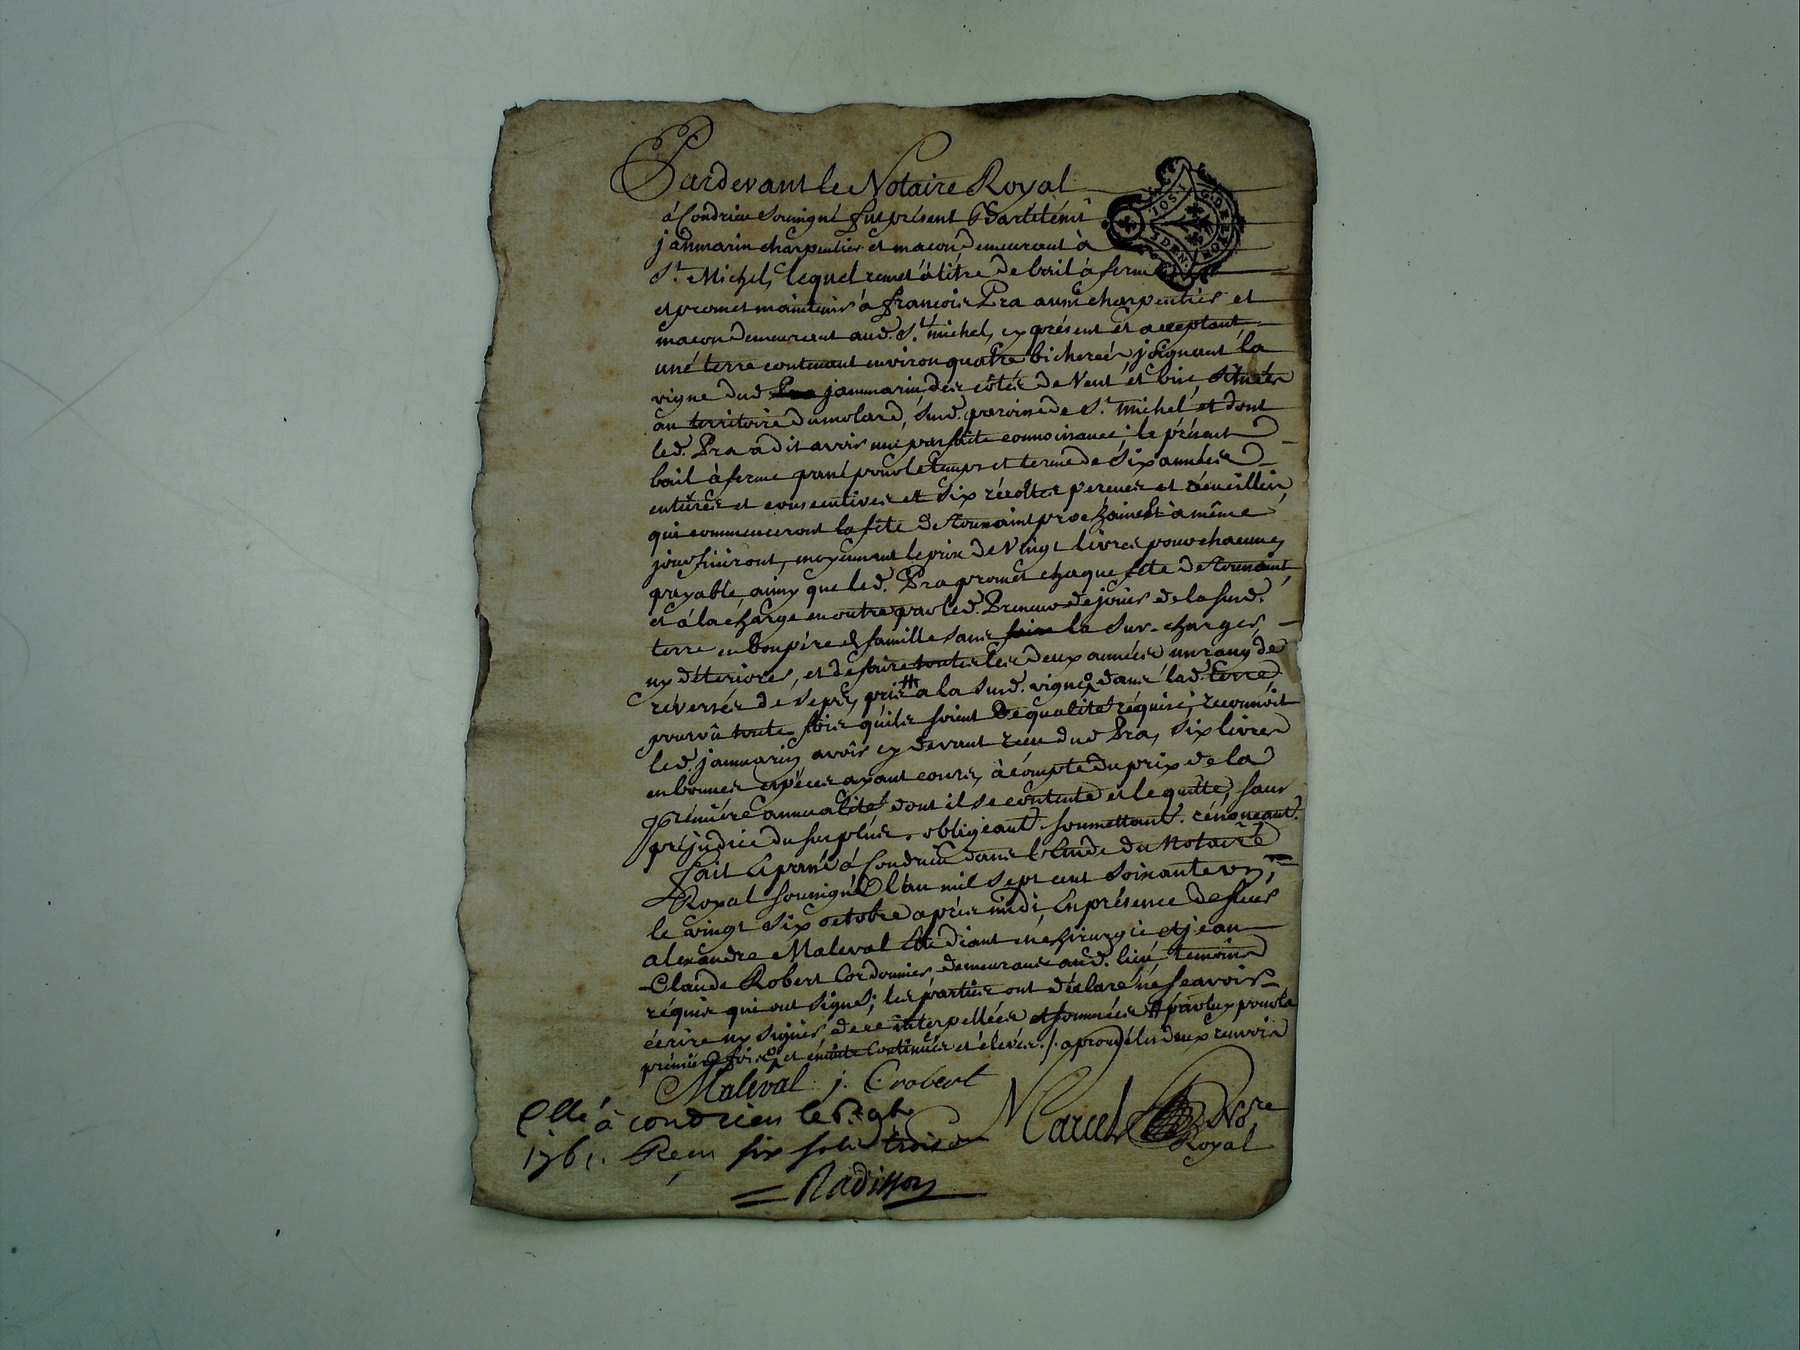 Pardevant le Notaire Royal
à Condrieu soussigné fut présent Barthélemi
janmarin charpentier et maçon demeurant à
St. Michel, lequel remet à titre de bail à ferme
et promet maintenir à françois Pra aussi charpentier et
maçon demeurant aud. St. michel, cy présent et acceptant
une terre contenant environ quatre bicherées joignant la
vigne dud janmarin des côtés de Vent et bise, située
au territoire du molard, sud. paroisse de St. michel et dont
led. Pra a dit avoir une parfaite connoissance; le présent
bail à ferme passé pour le temps et terme de six années
entières et consecutives et six récoltes perçues et recueillies
qui commenceront la fête de Toussaint prochaine et à même
jour finiront, moyennant le prix de Vingt livres pour chacune,
payable ainsy que led. Pra promet chaque fête de Toussaint,
et à la charge en outre par led. Preneur de jouir de la susd.
terre en bon père de famille sans la sur-charger
ny déteriorer, et de faire toutes les deux années un rang de
reversée de seps, pris # à la susd. vigne dans lad. terre
pourvû toute fois qu'ils soient de qualité réquise; reconnoit
led. janmarin avoir cy devant reçu dud Pra, six livres
en bonnes espèces ayant cours, à compte du prix de la
prémière annualité dont il se contente et le quitte, sans
préjudice du surplus. obligeant. soumettant. rénonçant.
fait et passé à Condrieu dans l'Etude du Notaire
Royal soussigné l'an mil sept cent soixante un,
le vingt six octobre après midi, En présence de sieur
alexandre Maleval Etudiant en chirurgie et jean
Claude Robert Cordonnier, demeurans aud. lieu témoins
réquis qui ont signé; les parties ont déclaré ne sçavoir
écrire ny signer, de ce interpellées et sommées # par lux pour la
prémière fois, et ensuite continuées et élevées ./. aprouvé les deux renvois
Maleval j. C robert
Marcel Nore
Royal
C lle à condrieu le 6e 9bre
1761. Reçu six sols trois d
Radisson
10S. G. DE
3 DEN.